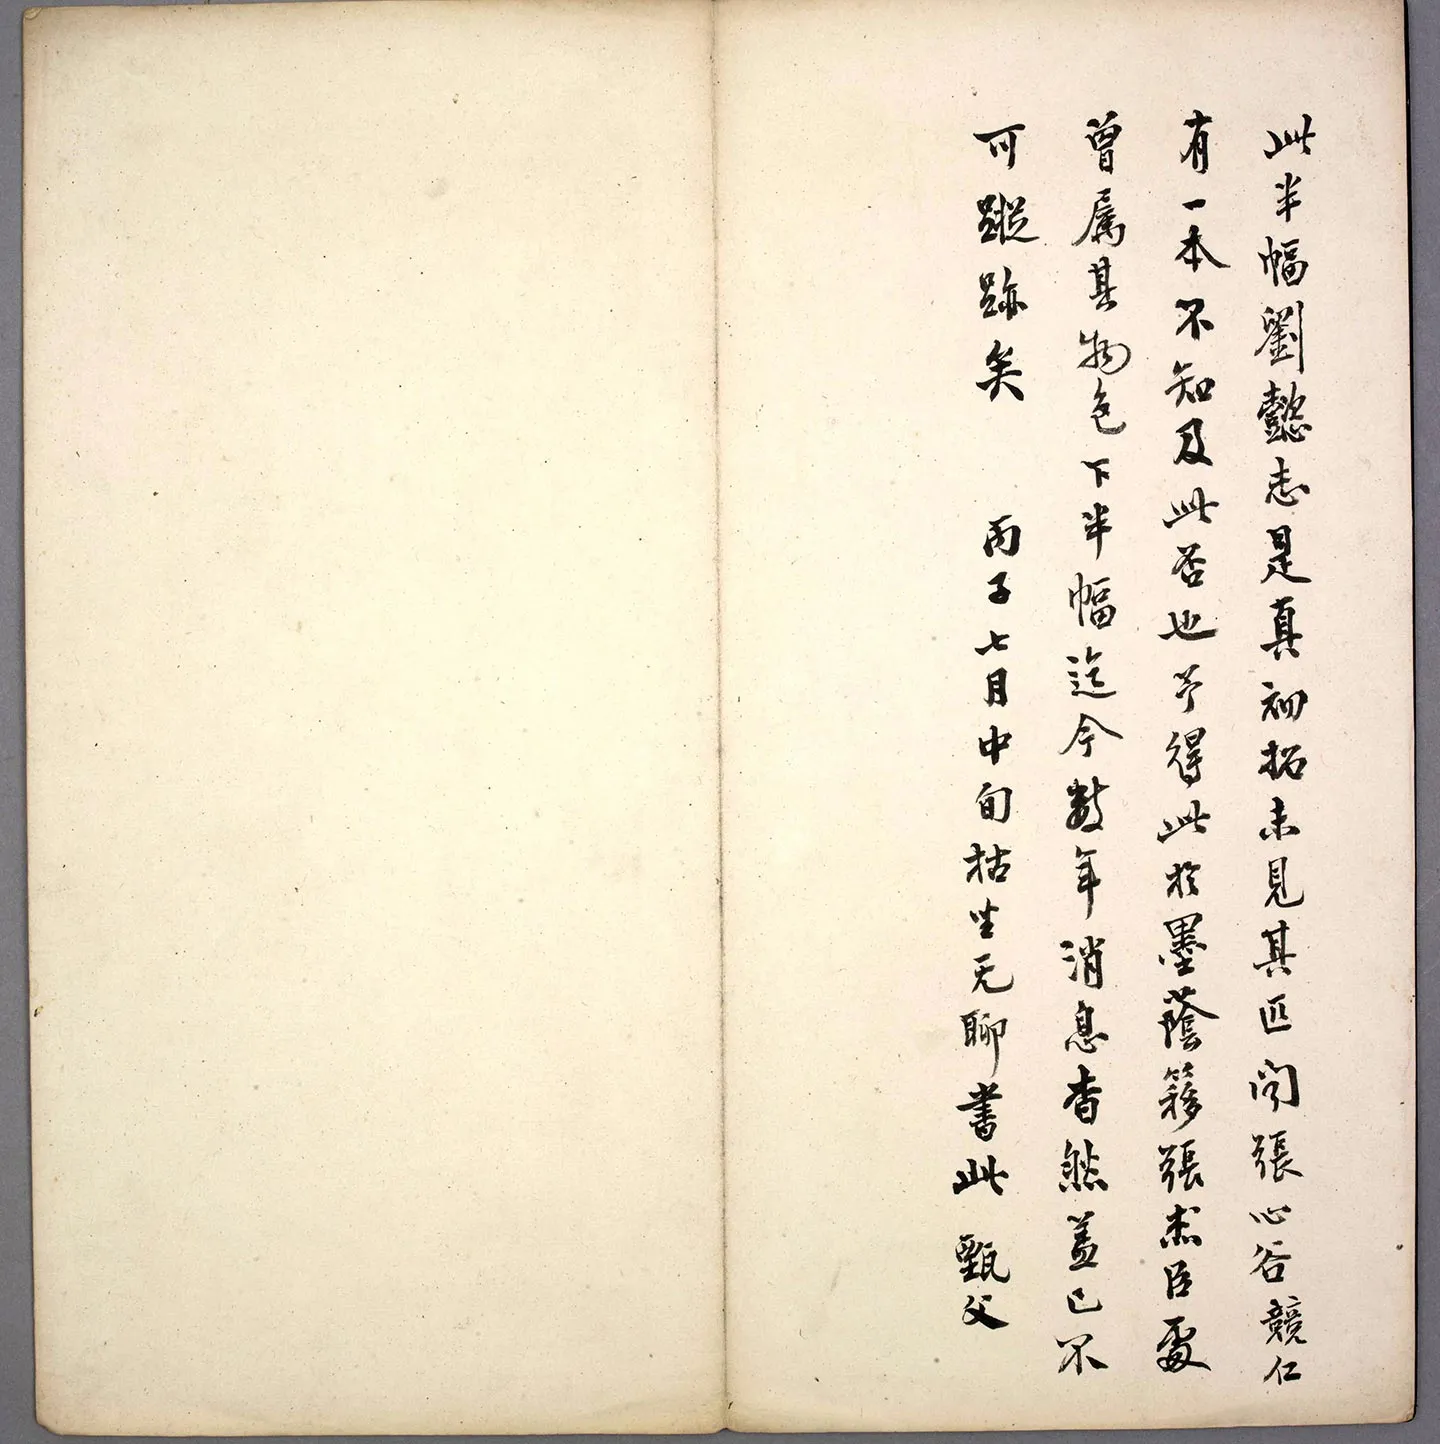 此半幅劉懿志是真初拓未見其匹聞張心谷競仁
有一本不知及此否也予得此於墨蔭簃張杰臣處
曾属其物色下半幅迄今數年消息杳然蓋已不
可蹤跡矣 丙子七月中旬枯坐无聊書此 甄父